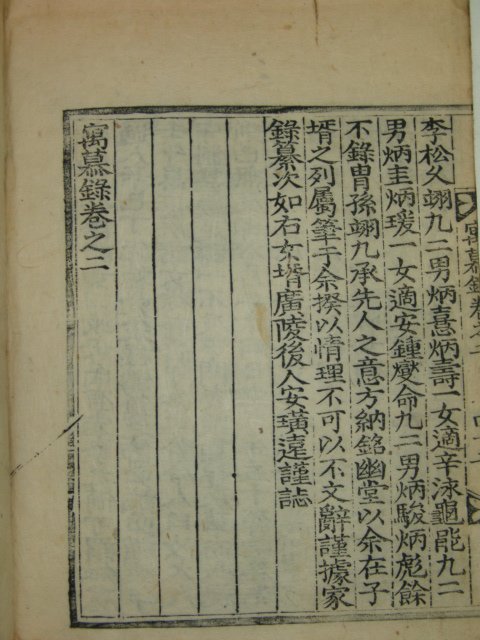 李松久翊九二男炳憙炳壽一女適辛泳龜能九二
男炳圭炳瑗一女適安鍾爕命九二男炳駿炳彪餘
不錄胄孫翊九承先人之意方納銘幽堂以余在子
壻之列屬筆于余揆以情理不可以不文辭謹據家
錄纂次如右女壻廣陵後人安璜遠謹誌
寓慕錄卷之二
寓慕錄卷之二